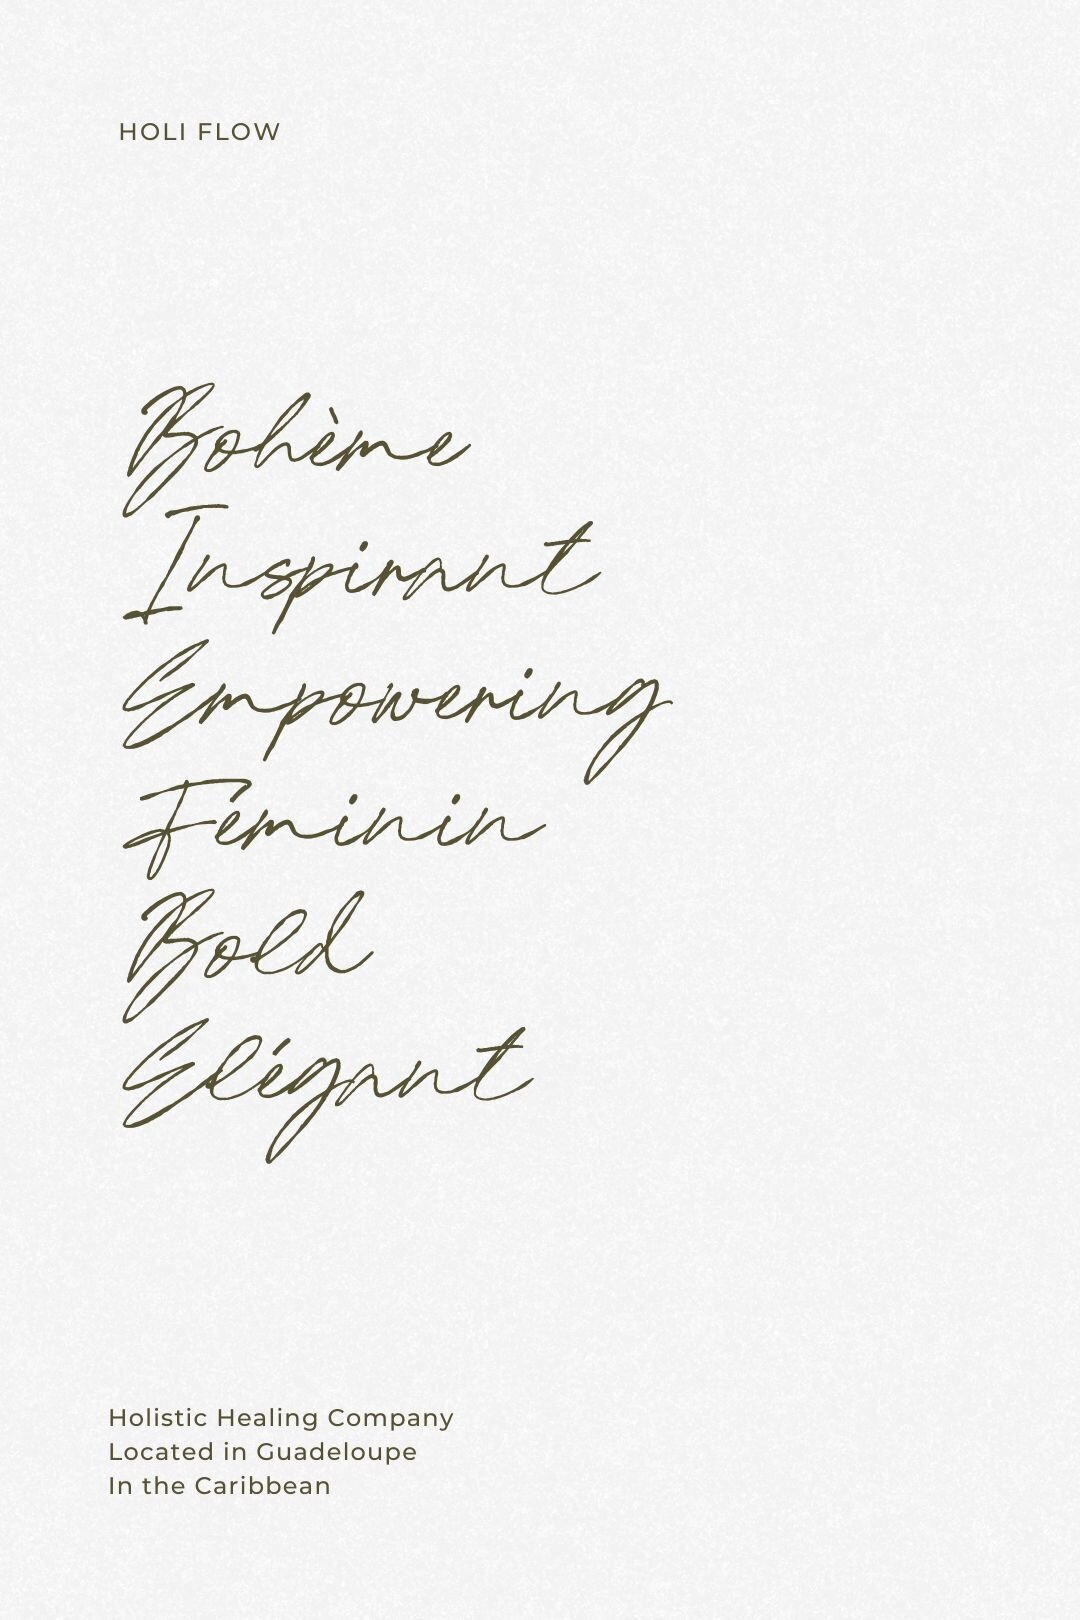 HOLI FLOW
Bohème
Inspirant
Empowering
Féminin
Bold
Elégant
Holistic Healing Company
Located in Guadeloupe
In the Caribbean